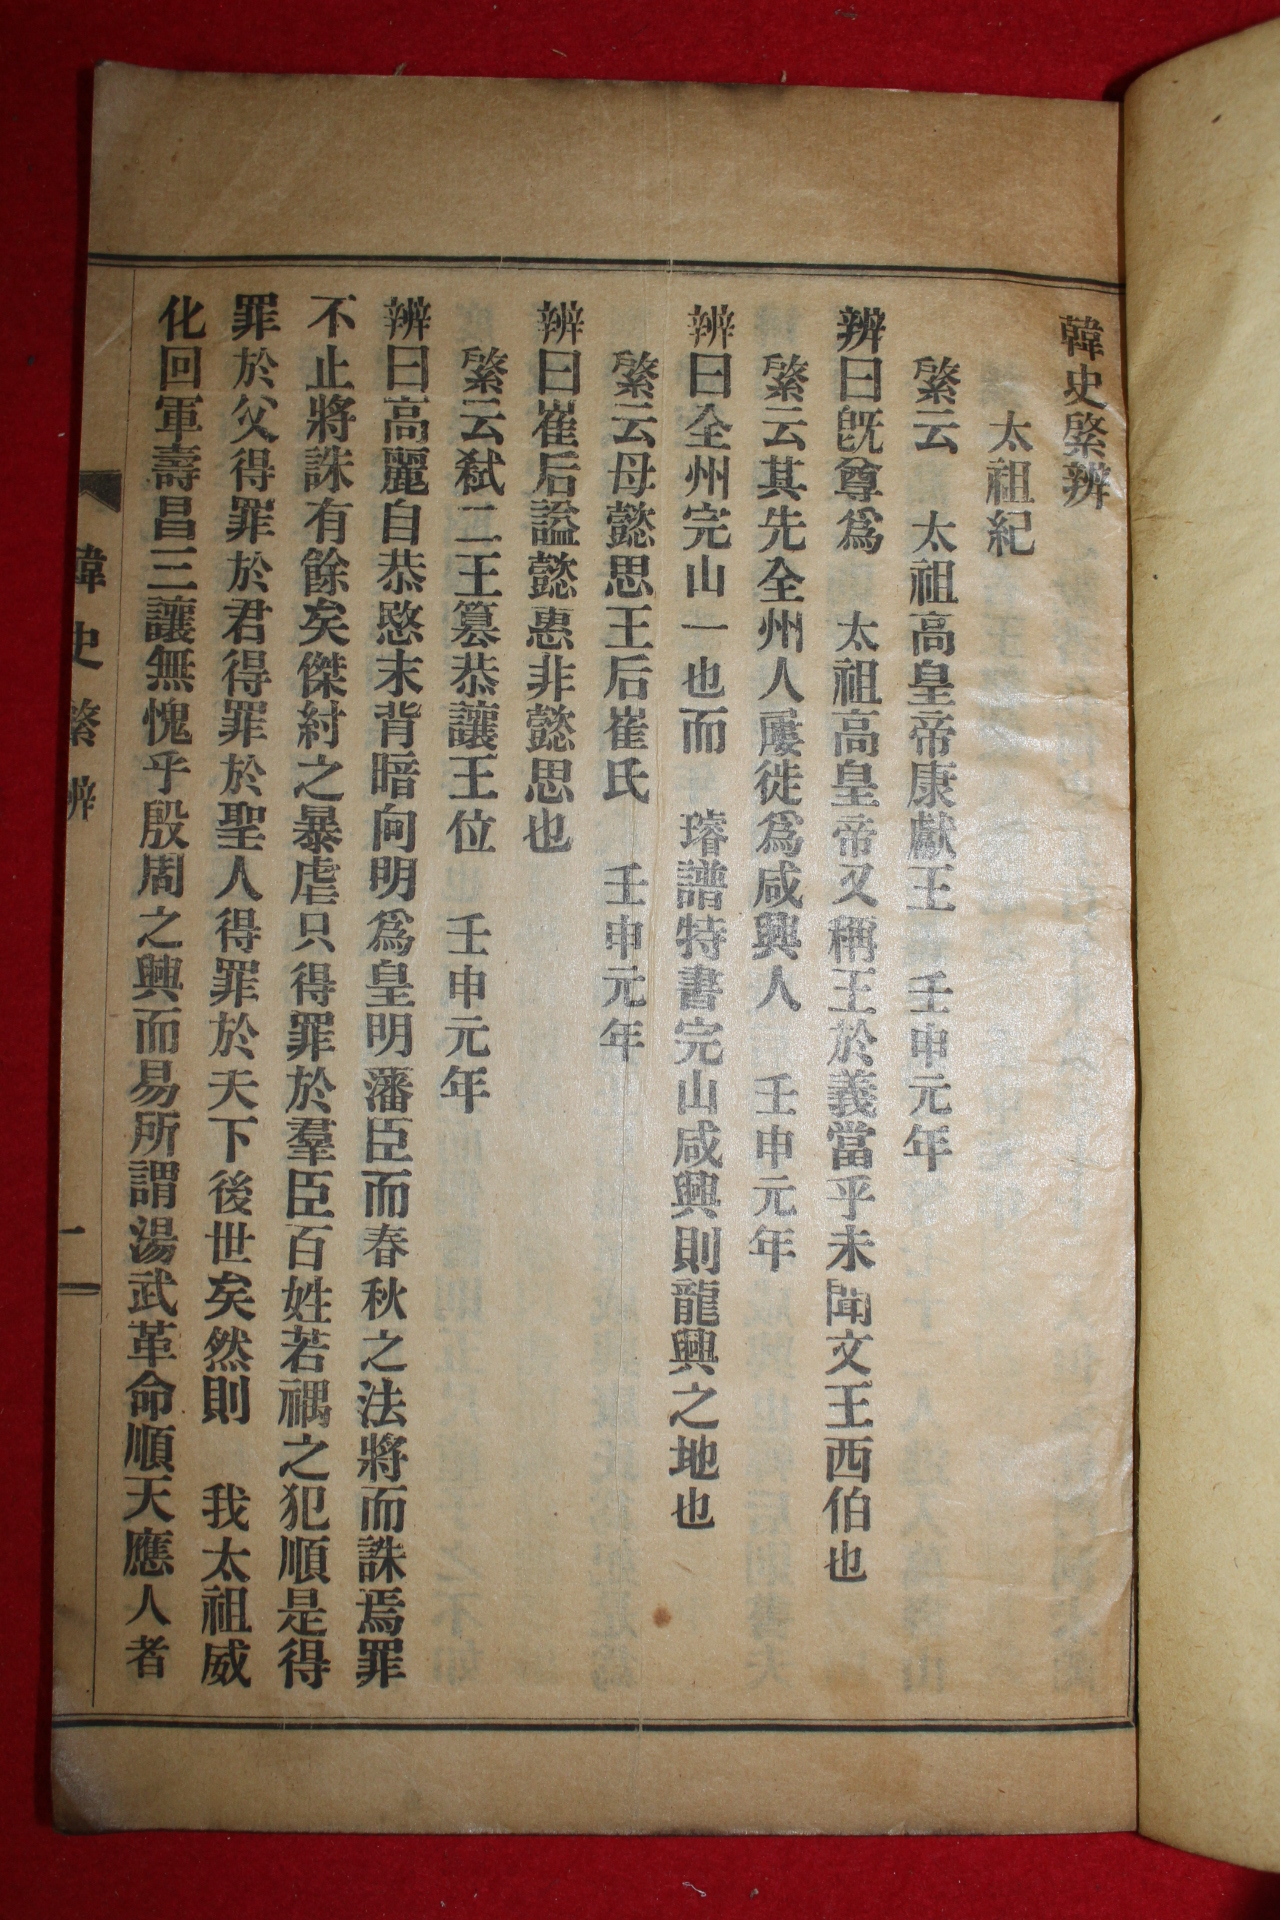 韓史綮辨
太祖紀
綮云　太祖高皇帝康獻王　壬申元年
辨曰旣尊爲　太祖高皇帝又稱王於義當乎未聞文王西伯也
綮云其先全州人屢徙爲咸興人　壬申元年
辨曰全州完山一也而　璿譜特書完山咸興則龍興之地也
綮云母懿思王后崔氏　壬申元年
辨曰崔后諡懿惠非懿思也
綮云弑二王簒恭讓王位　壬申元年
辨曰高麗自恭愍末背暗向明爲皇明藩臣而春秋之法將而誅焉罪
不止將誅有餘矣傑紂之暴虐只得罪於羣臣百姓若禑之犯順是得
罪於父得罪於君得罪於聖人得罪於天下後世矣然則　我太祖威
化回軍壽昌三讓無愧乎殷周之興而易所謂湯武革命順天應人者
韓史綮辨　一